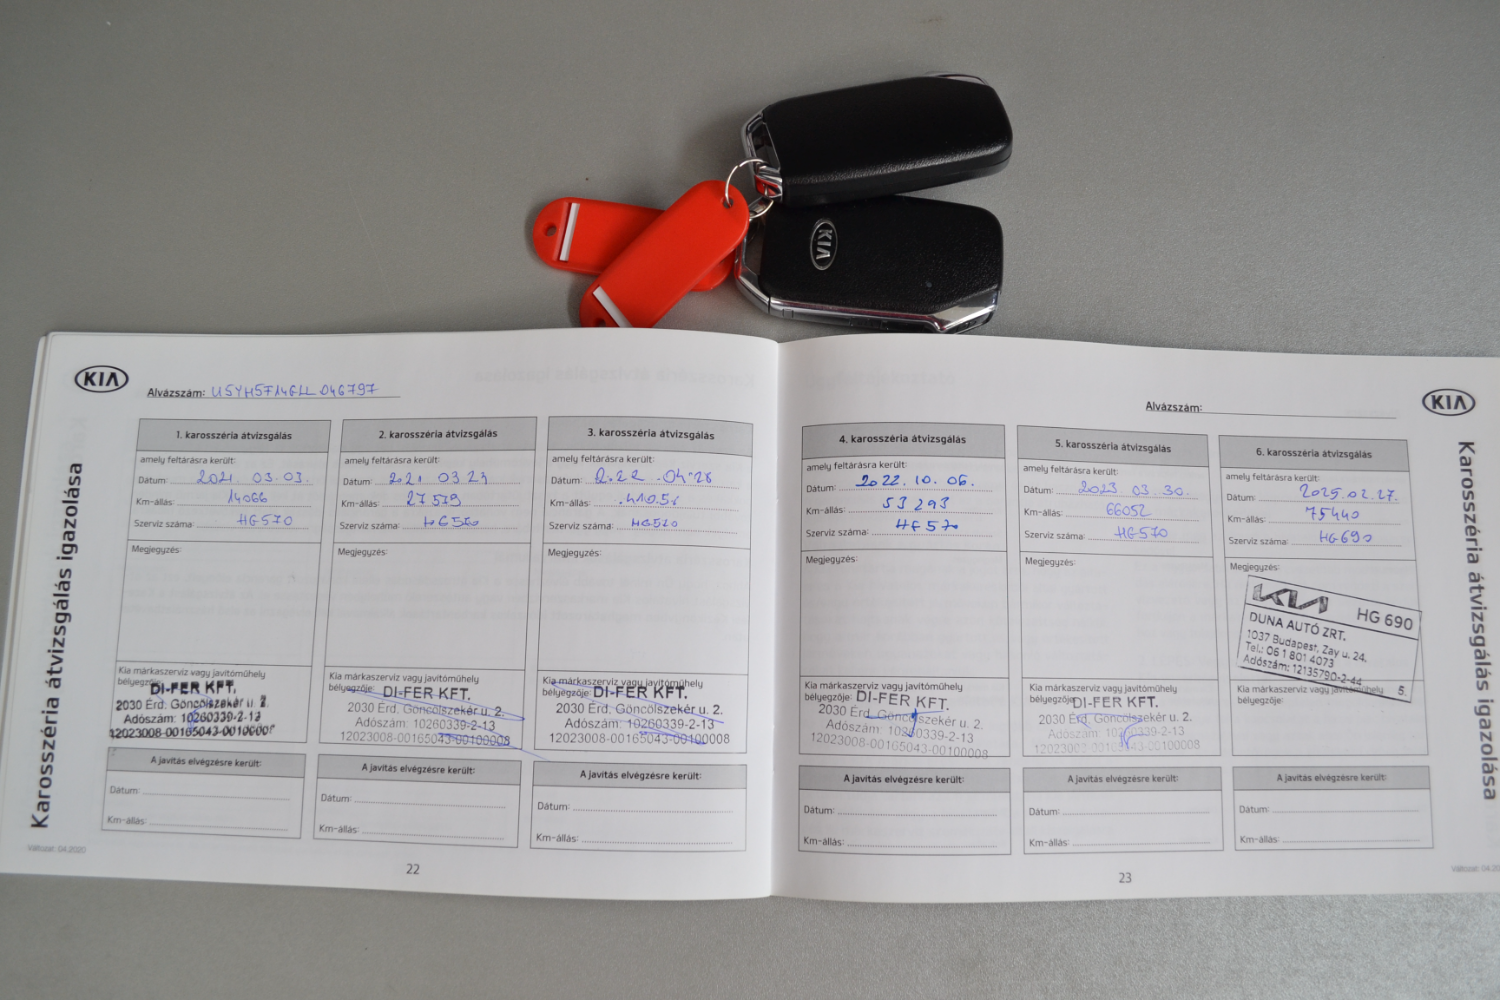 KIA
KIA
Alvázszám: U5YH5F14GLL046797
Karosszéria átvizsgálás igazolása
1. karosszéria átvizsgálás
amely feltárásra került:
Dátum: 2021. 03.03.
Km-állás: 14066
Szerviz száma: HG570
Megjegyzés:
Kia márkaszerviz vagy javítóműhely
bélyegzője:
DI-FER KFT.
2030 Érd. Göncölszekér u. 2.
Adószám: 10260339-2-13
12023008-00165043-00100008
A javítás elvégzésre került:
Dátum:
Km-állás:
2. karosszéria átvizsgálás
amely feltárásra került:
Dátum:
Km-állás: 27579
Szerviz száma: HG570
Megjegyzés:
Kia márkaszerviz vagy javítóműhely
bélyegzője: DI-FER KFT.
2030 Érd. Göncölszekér u. 2.
Adószám: 10260339-2-13
12023008-00165043-00100008
A javítás elvégzésre került:
Dátum:
Km-állás:
3. karosszéria átvizsgálás
amely feltárásra került:
Dátum:
Km-állás:
Szerviz száma:
Megjegyzés:
Kia márkaszerviz vagy javítóműhely
bélyegzője: DI-FER KFT.
2030 Érd. Göncölszekér u. 2.
Adószám: 10260339-2-13
12023008-00165043-00100008
A javítás elvégzésre került:
Dátum:
Km-állás:
Változat: 04.2020
22
KIA
Alvázszám:
4. karosszéria átvizsgálás
amely feltárásra került:
Dátum: 2022.10.06.
Km-állás: 53293
Szerviz száma: HG570
Megjegyzés:
Kia márkaszerviz vagy javítóműhely
bélyegzője: DI-FER KFT.
2030 Érd. Göncölszekér u. 2.
Adószám: 10260339-2-13
12023008-00165043-00100008
A javítás elvégzésre került:
Dátum:
Km-állás:
5. karosszéria átvizsgálás
amely feltárásra került:
Dátum: 2023.03.30.
Km-állás: 66052
Szerviz száma: HG570
Megjegyzés:
Kia márkaszerviz vagy javítóműhely
bélyegzője: DI-FER KFT.
2030 Érd. Göncölszekér u. 2.
Adószám: 10260339-2-13
12023008-00165043-00100008
A javítás elvégzésre került:
Dátum:
Km-állás:
6. karosszéria átvizsgálás
amely feltárásra került:
Dátum: 2025.02.27.
Km-állás: 75440
Szerviz száma: HG690
Megjegyzés:
KIA HG 690
DUNA AUTÓ ZRT.
1037 Budapest, Zay u. 24.
Tel.: 06 1 801 4073
Adószám: 12135790-2-44
5.
Kia márkaszerviz vagy javítóműhely
bélyegzője:
A javítás elvégzésre került:
Dátum:
Km-állás:
Karosszéria átvizsgálás igazolása
23